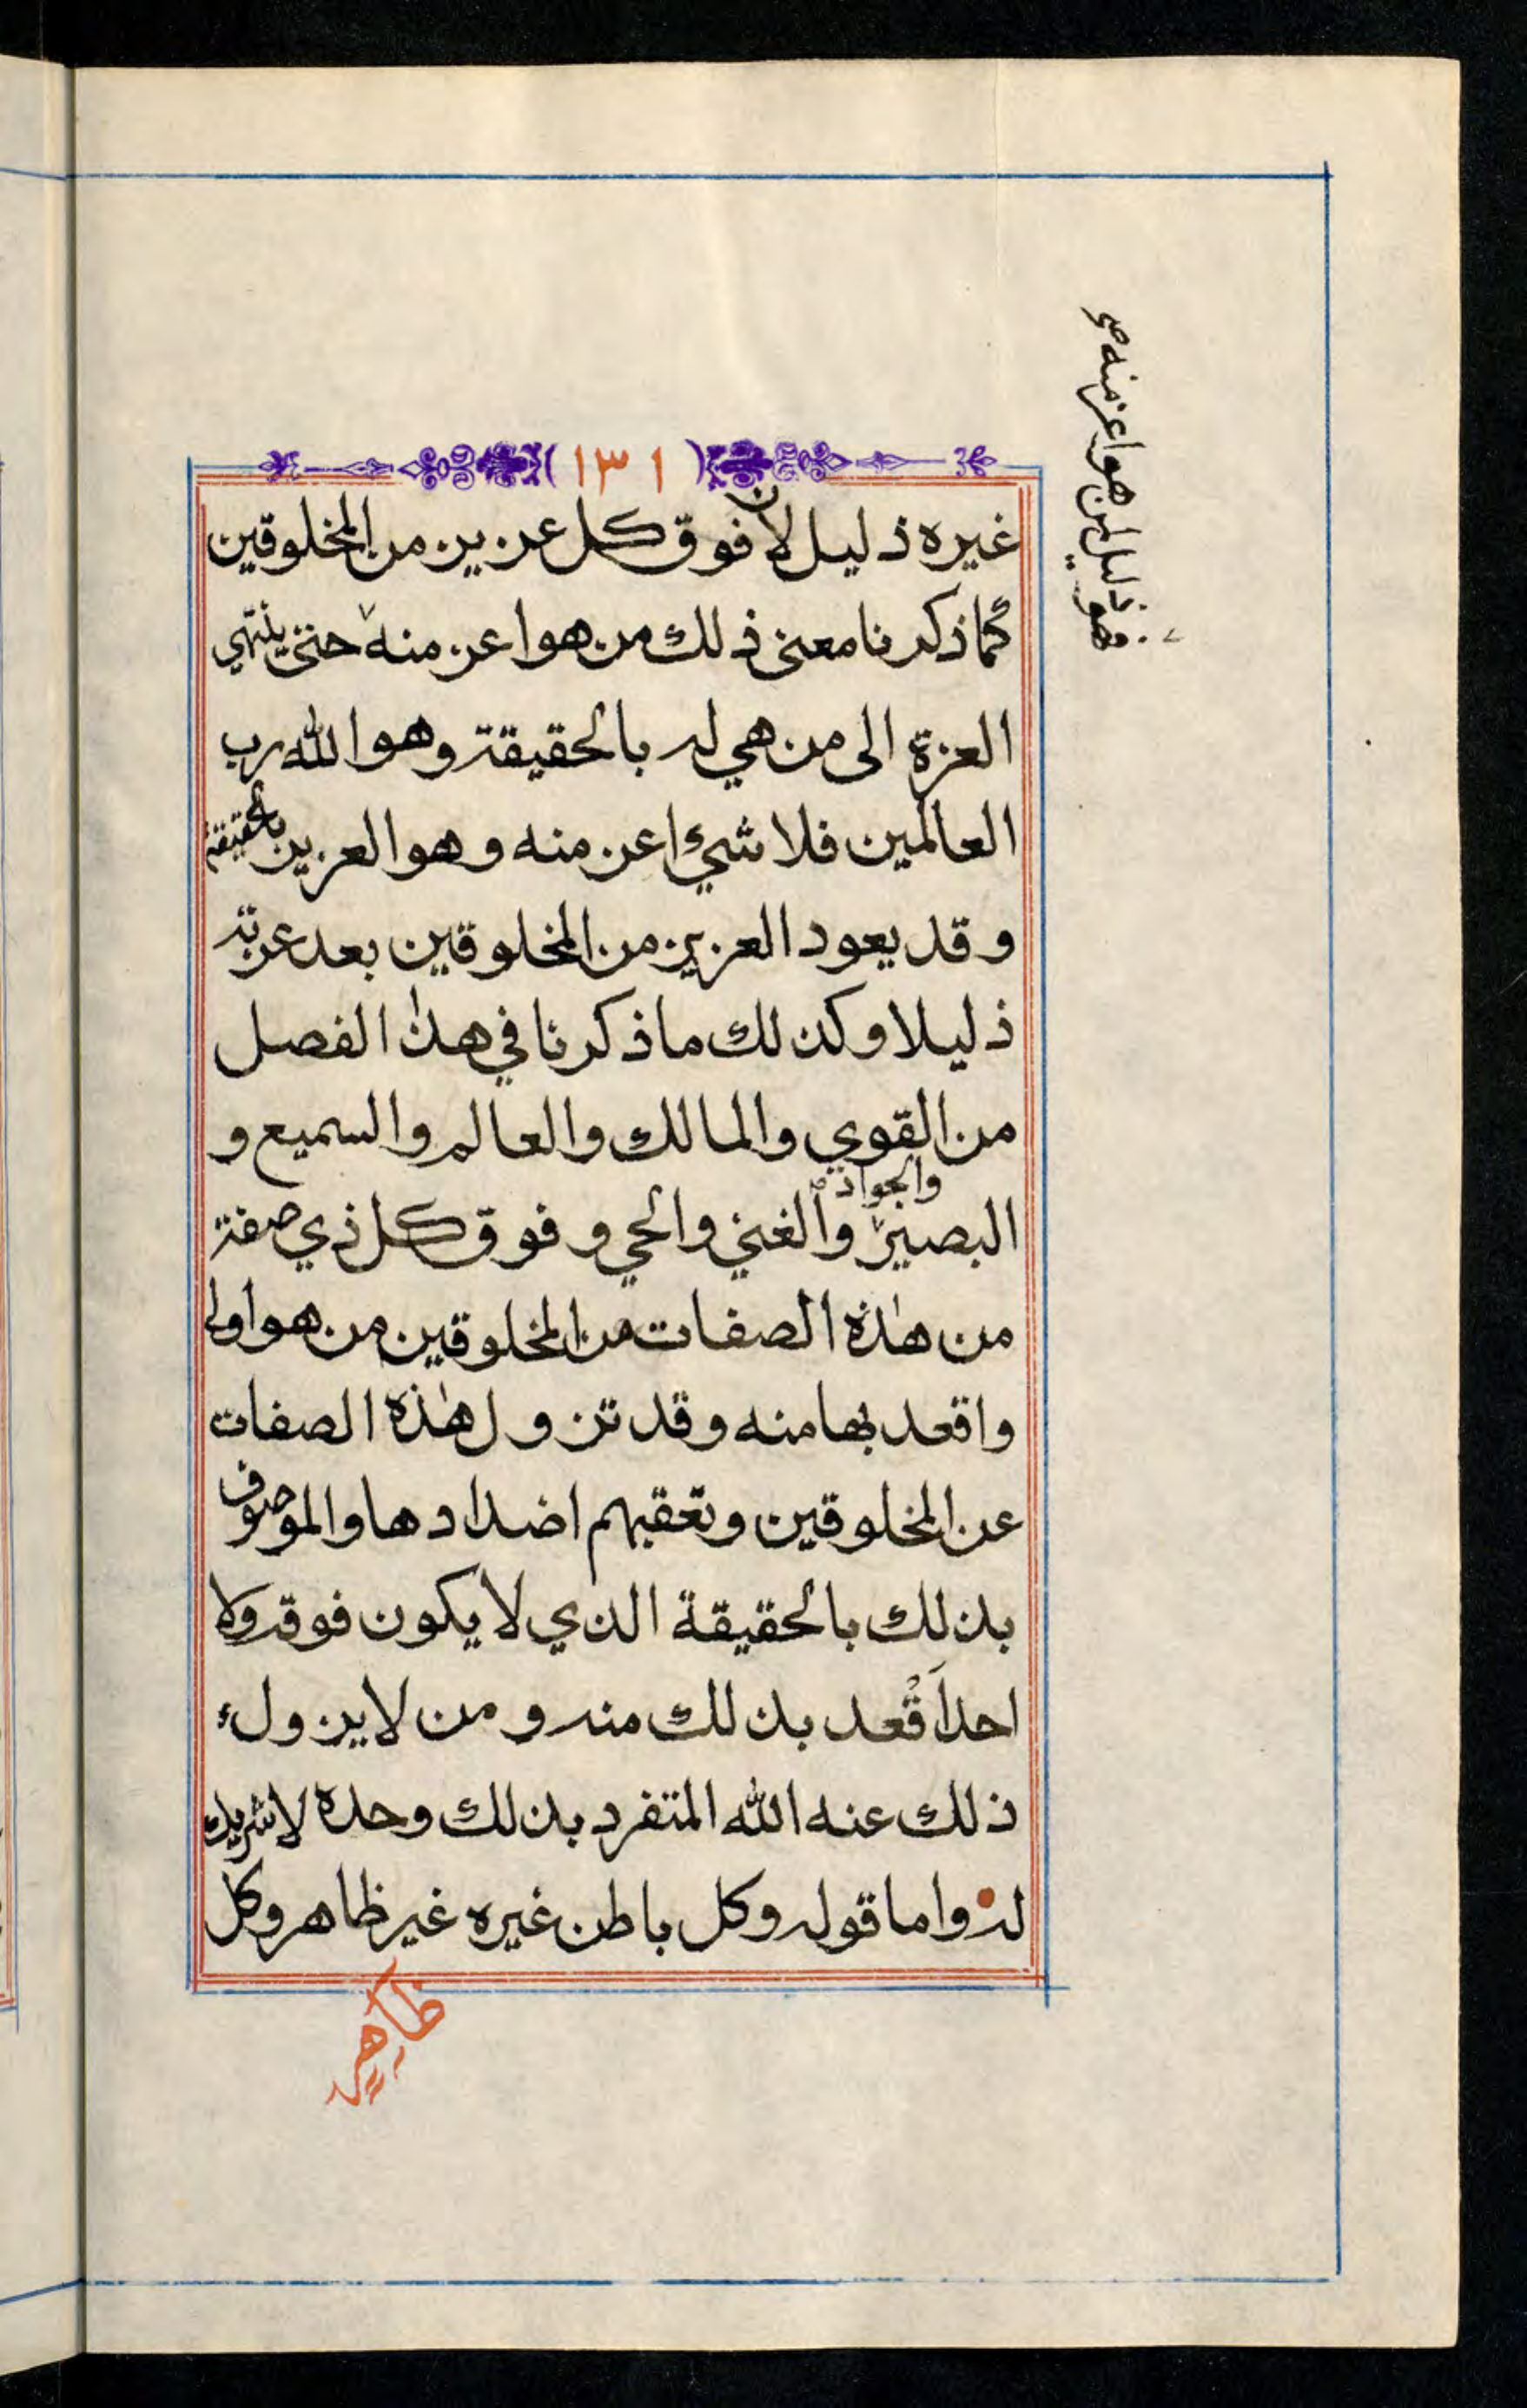 فهو ذليل لمن هو اعز منه صح
١٣١
غيره ذليل لان فوق كل عزيز من المخلوقين
كما ذكرنا معنى ذلك من هو اعز منه حتى ينتهي
العزة الى من هي له بالحقيقة وهو الله رب
العالمين فلا شيء اعز منه وهو العزيز بالحقيقة
وقد يعود العزيز من المخلوقين بعد عزته
ذليلا وكذلك ما ذكرنا في هذا الفصل
من القوي والمالك والعالم والسميع و
والجواد
البصير والغني والحي وفوق كل ذي صفة
من هذه الصفات من المخلوقين من هو اولى
واقعد بها منه وقد تزول هذه الصفات
عن المخلوقين وتعقبهم اضدادها والموصوف
بذلك بالحقيقة الذي لا يكون فوقه ولا
احد اقعد بذلك منه ومن لا يزول
ذلك عنه الله المتفرد بذلك وحده لا شريك
له واما قوله وكل باطن غيره غير ظاهر وكل
ظاهر